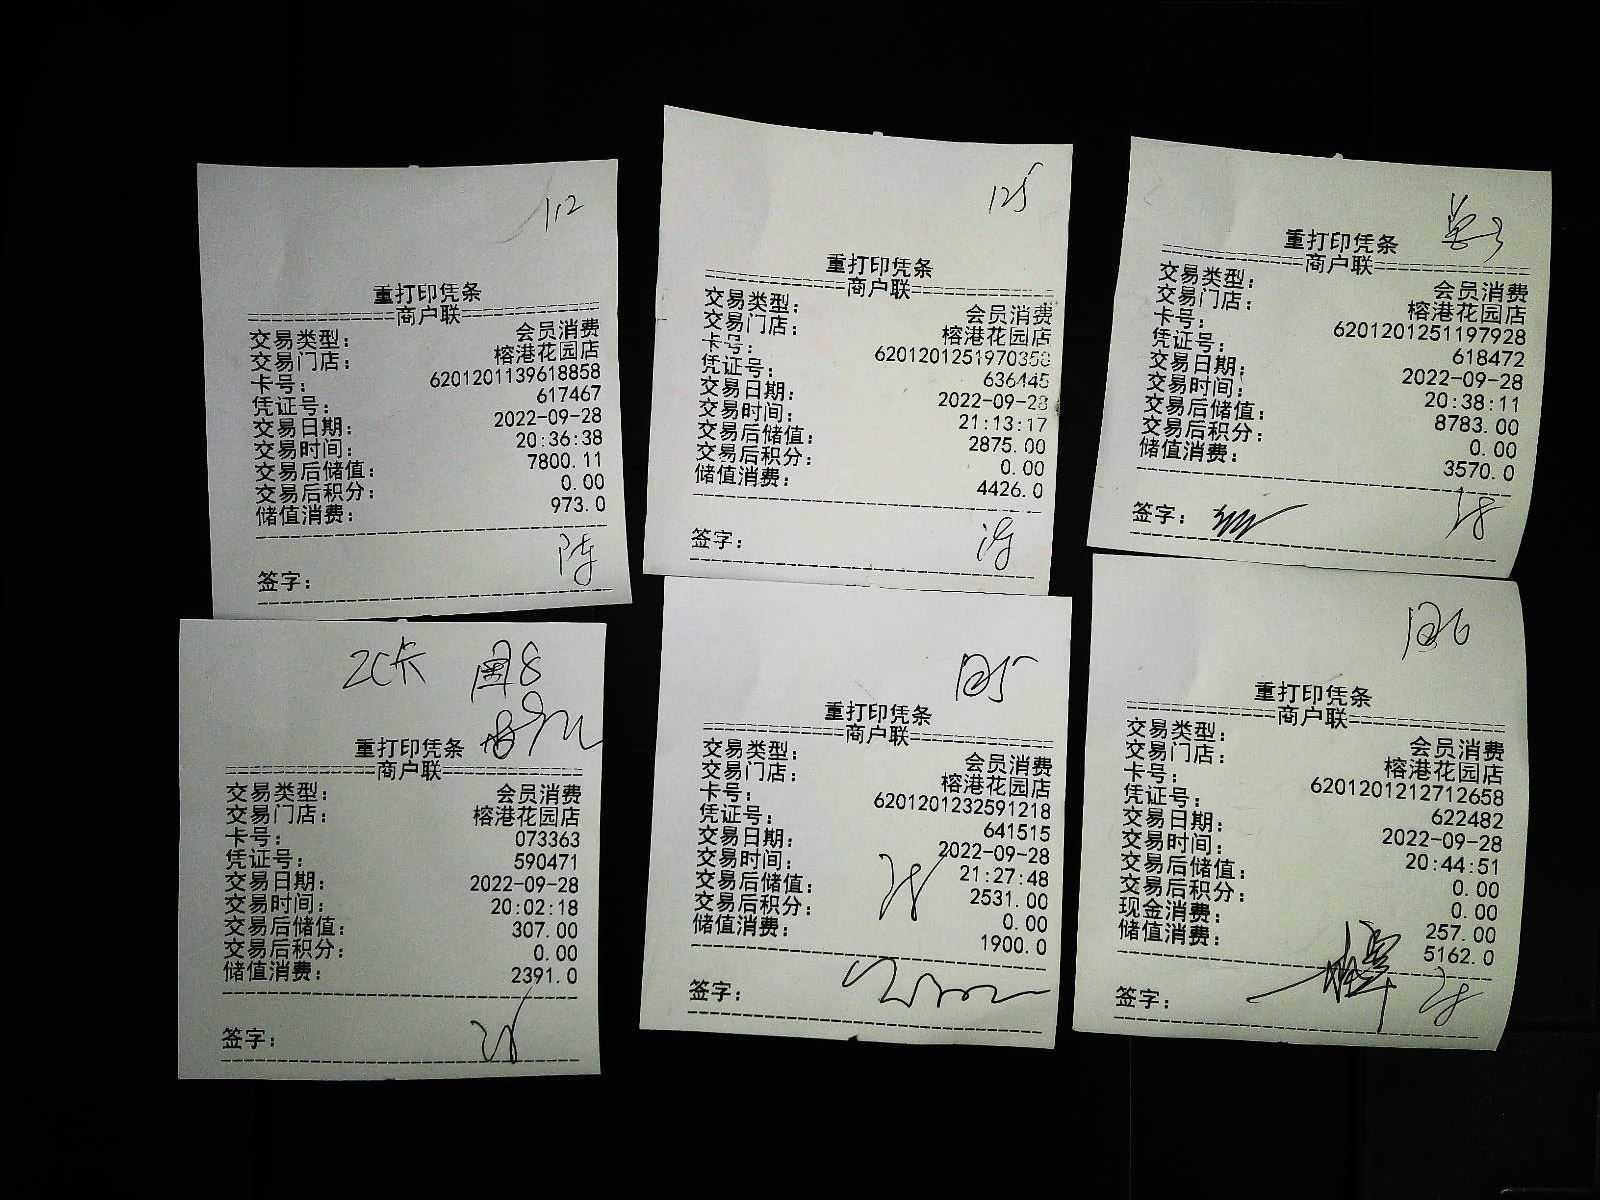 112
重打印凭条
商户联
交易类型: 会员消费
交易门店: 榕港花园店
卡号: 6201201139618858
凭证号: 617467
交易日期: 2022-09-28
交易时间: 20:36:38
交易后储值: 7800.11
交易后积分: 0.00
储值消费: 973.0
签字:
125
重打印凭条
商户联
交易类型: 会员消费
交易门店: 榕港花园店
卡号: 6201201251970358
凭证号: 636445
交易日期: 2022-09-28
交易时间: 21:13:17
交易后储值: 2875.00
交易后积分: 0.00
储值消费: 4426.0
签字:
重打印凭条
商户联
交易类型: 会员消费
交易门店: 榕港花园店
卡号: 6201201251197928
凭证号: 618472
交易日期: 2022-09-28
交易时间: 20:38:11
交易后储值: 8783.00
交易后积分: 0.00
储值消费: 3570.0
签字:
重打印凭条
商户联
交易类型: 会员消费
交易门店: 榕港花园店
卡号: 073363
凭证号: 590471
交易日期: 2022-09-28
交易时间: 20:02:18
交易后储值: 307.00
交易后积分: 0.00
储值消费: 2391.0
签字:
重打印凭条
商户联
交易类型: 会员消费
交易门店: 榕港花园店
卡号: 6201201232591218
凭证号: 641515
交易日期: 2022-09-28
交易时间: 21:27:48
交易后储值: 2531.00
交易后积分: 0.00
储值消费: 1900.0
签字:
重打印凭条
商户联
交易类型: 会员消费
交易门店: 榕港花园店
卡号: 6201201212712658
凭证号: 622482
交易日期: 2022-09-28
交易时间: 20:44:51
交易后储值: 0.00
交易后积分: 0.00
现金消费: 257.00
储值消费: 5162.0
签字: